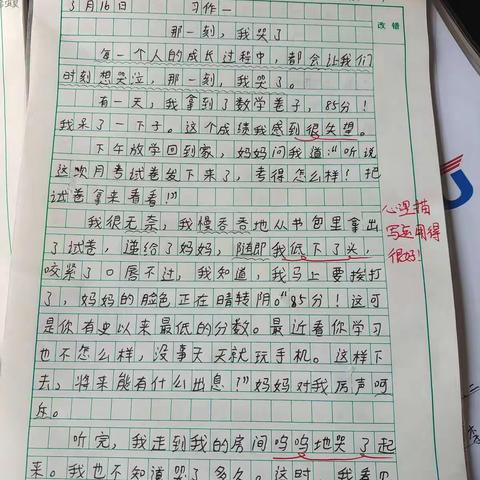 3月16日 习作一
改错
那一刻，我哭了
每一个人的成长过程中，都会让我们
时刻想哭泣，那一刻，我哭了。
有一天，我拿到了数学卷子，85分！
我呆了一下子。这个成绩我感到很失望。
下午放学回到家，妈妈问我道："听说
这次月考试卷发下来了，考得怎么样！把
试卷拿来看看！"
我很无奈，我慢吞吞地从书包里拿出
了试卷，递给了妈妈，随即我低下了头，
咬紧了口唇不过，我知道，我马上要挨打
了，妈妈的脸色正在晴转阴。"85分！这可
是你有史以来最低的分数。最近看你学习
也不怎么样，没事天天就玩手机。这样下
去，将来能有什么出息？"妈妈对我厉声呵
斥。
听完，我走到我的房间呜呜地哭了起
来。我也不知道哭了多久。这时，我看
心理描
写运用得
很好！